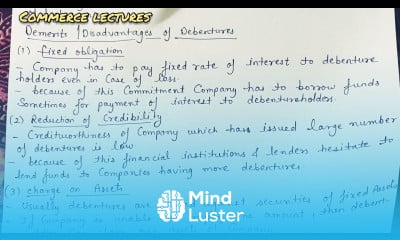 COMMERCE LECTURES
Demerits / Disadvantages of Debentures
(1) fixed obligation
- Company has to pay fixed rate of interest to debenture
holders even in case of loss.
- because of this Commitment Company has to borrow funds
Sometimes for payment of interest to debentureholders.
(2) Reduction of Credibility
- Creditworthiness of Company which has issued large number
of debentures is low
because of this financial institutions & lenders hesitate to
lend funds to Companies having more debentures
(3) charge on Assets
- Usually debentures are securities of fixed Assets
- If Company is unable amount, then debent-
Mind
Luster